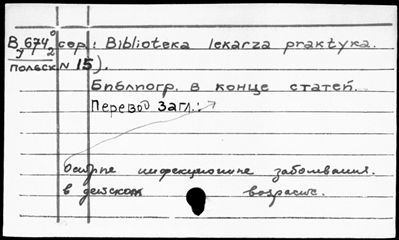 В 674 сер.: Biblioteka lekarza praktyka.
У 2
польск N 15).
Библиогр. в конце статей.
Перевод загл.:
острые инфекционные заболевания.
в детском возрасте.